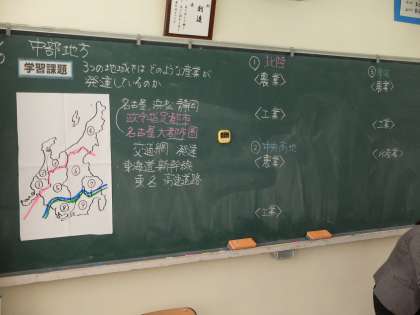 中部地方
学習課題
3つの地域ではどのような産業が
発達しているのか
名古屋 浜松 静岡
政令指定都市
名古屋大都市圏
交通網 発達
東海道新幹線
東名高速道路
① 北陸
<農業>
<工業>
② 中央高地
<農業>
<工業>
③ 東海
<農業>
<工業>